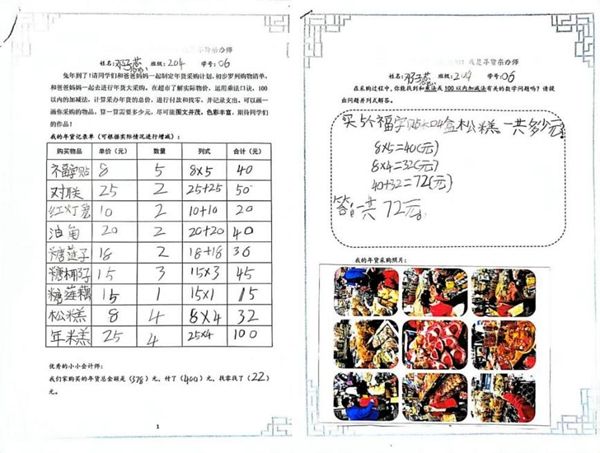 是年货采办师
姓名: 班级:204 学号:06
兔年到了!请同学们和爸爸妈妈一起制定年货采购计划,初步罗列购物清单,
和爸爸妈妈一起去进行年货大采购,在超市了解实际物价,运用乘法口诀、100
以内的加减法,计算采办年货的总价,进行付款和找零,并记录支出。可以画一
画你采购的物品,算一算需要多少元,尽可能图文并茂,色彩丰富,期待同学们
的作品!
我的年货记录单(可根据实际情况进行增减):
购买物品 单价(元) 数量 列式 合计(元)
福字贴 8 5 8×5 40
对联 25 2 25+25 50
红灯笼 10 2 10+10 20
油角 20 2 20+20 40
糖莲子 18 2 18+18 36
糖椰子 15 3 15×3 45
糖莲藕 15 1 15×1 15
松糕 8 4 8×4 32
年糕 25 4 25×4 100
优秀的小小会计师:
我们家购买的年货总金额是(378)元,付了(400)元,找零找了(22)
元。
1
我是年货采办师
姓名: 班级:204 学号:06
在采购过程中,你能找到和乘法或100以内加减法有关的数学问题吗?请提
出问题并列式解答。
买5个福字贴和4盒松糕一共多少元
8×5=40(元)
8×4=32(元)
40+32=72(元)
答:一共72元。
我的年货采购照片: